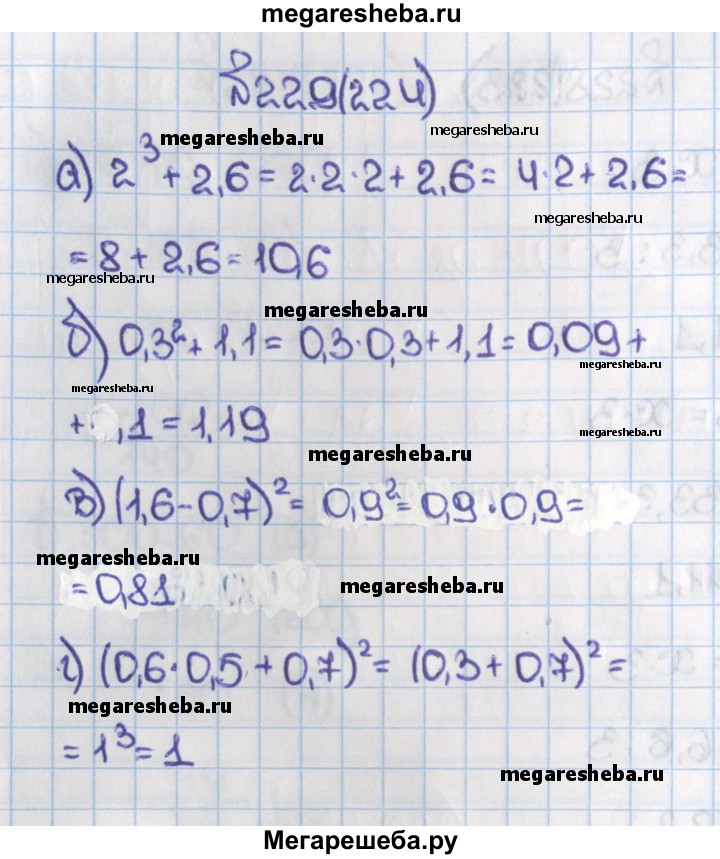 megaresheba.ru
№229(224)
megaresheba.ru
megaresheba.ru
а) 2³ + 2,6 = 2·2·2 + 2,6 = 4·2 + 2,6 =
megaresheba.ru
= 8 + 2,6 = 10,6
megaresheba.ru
megaresheba.ru
б) 0,3² + 1,1 = 0,3·0,3 + 1,1 = 0,09 +
megaresheba.ru
megaresheba.ru
+ ,1 = 1,19
megaresheba.ru
megaresheba.ru
в) (1,6 - 0,7)² = 0,9² = 0,9·0,9 =
megaresheba.ru
megaresheba.ru
= 0,81
г) (0,6·0,5 + 0,7)² = (0,3 + 0,7)² =
megaresheba.ru
= 1³ = 1
megaresheba.ru
Мегарешеба.ру